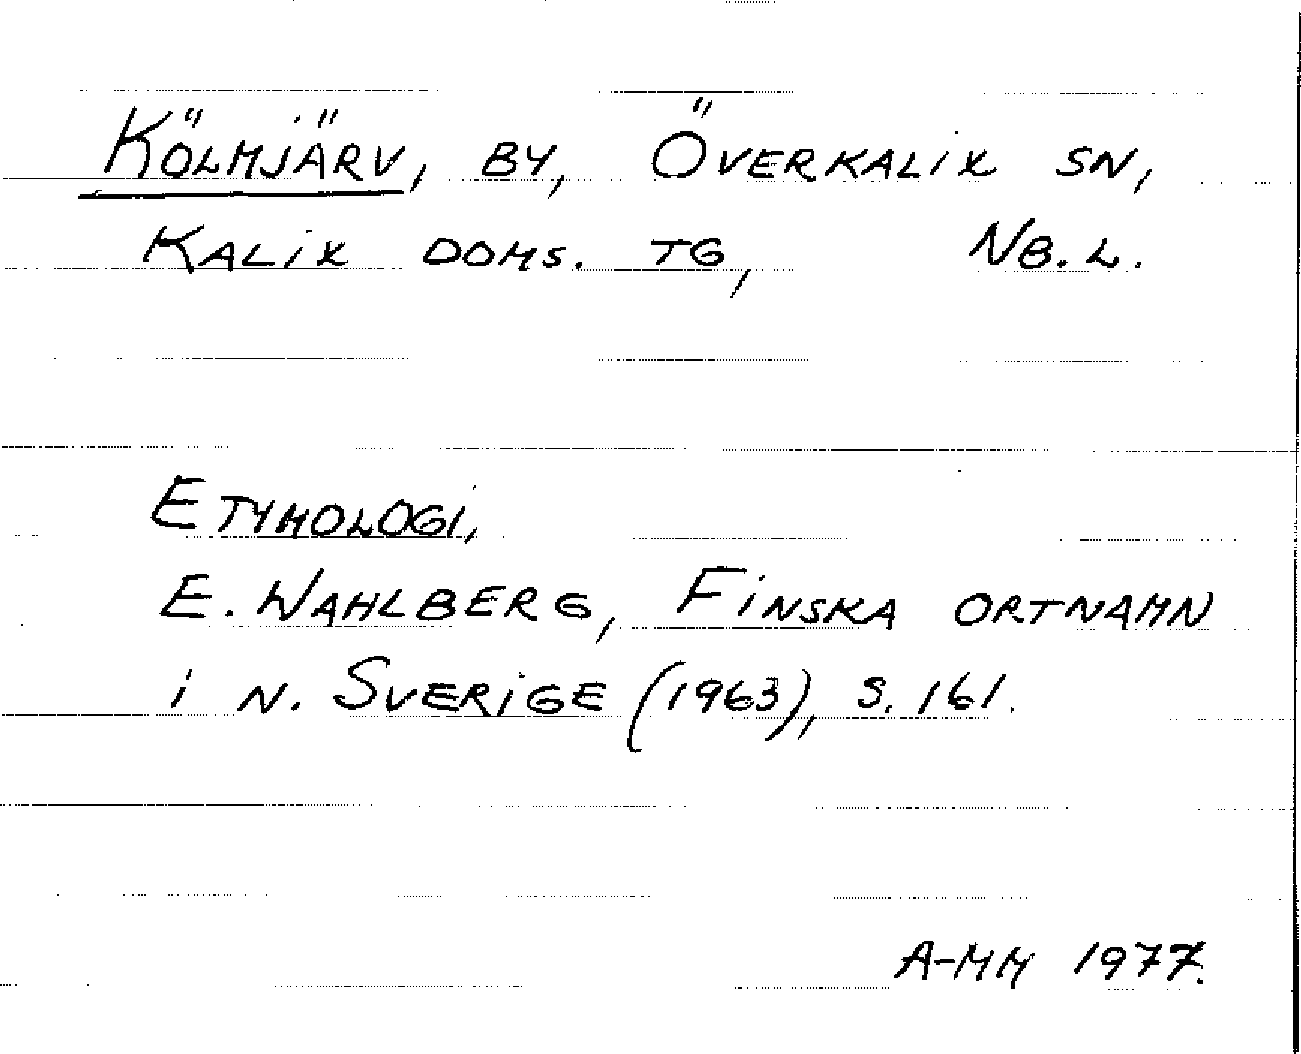 Kölmjärv, by, Överkalix sn,
Kalix doms. tg, Nb.l.
Etymologi,
E. Wahlberg, Finska ortnamn
i n. Sverige (1963), s. 161.
A-MM 1977.